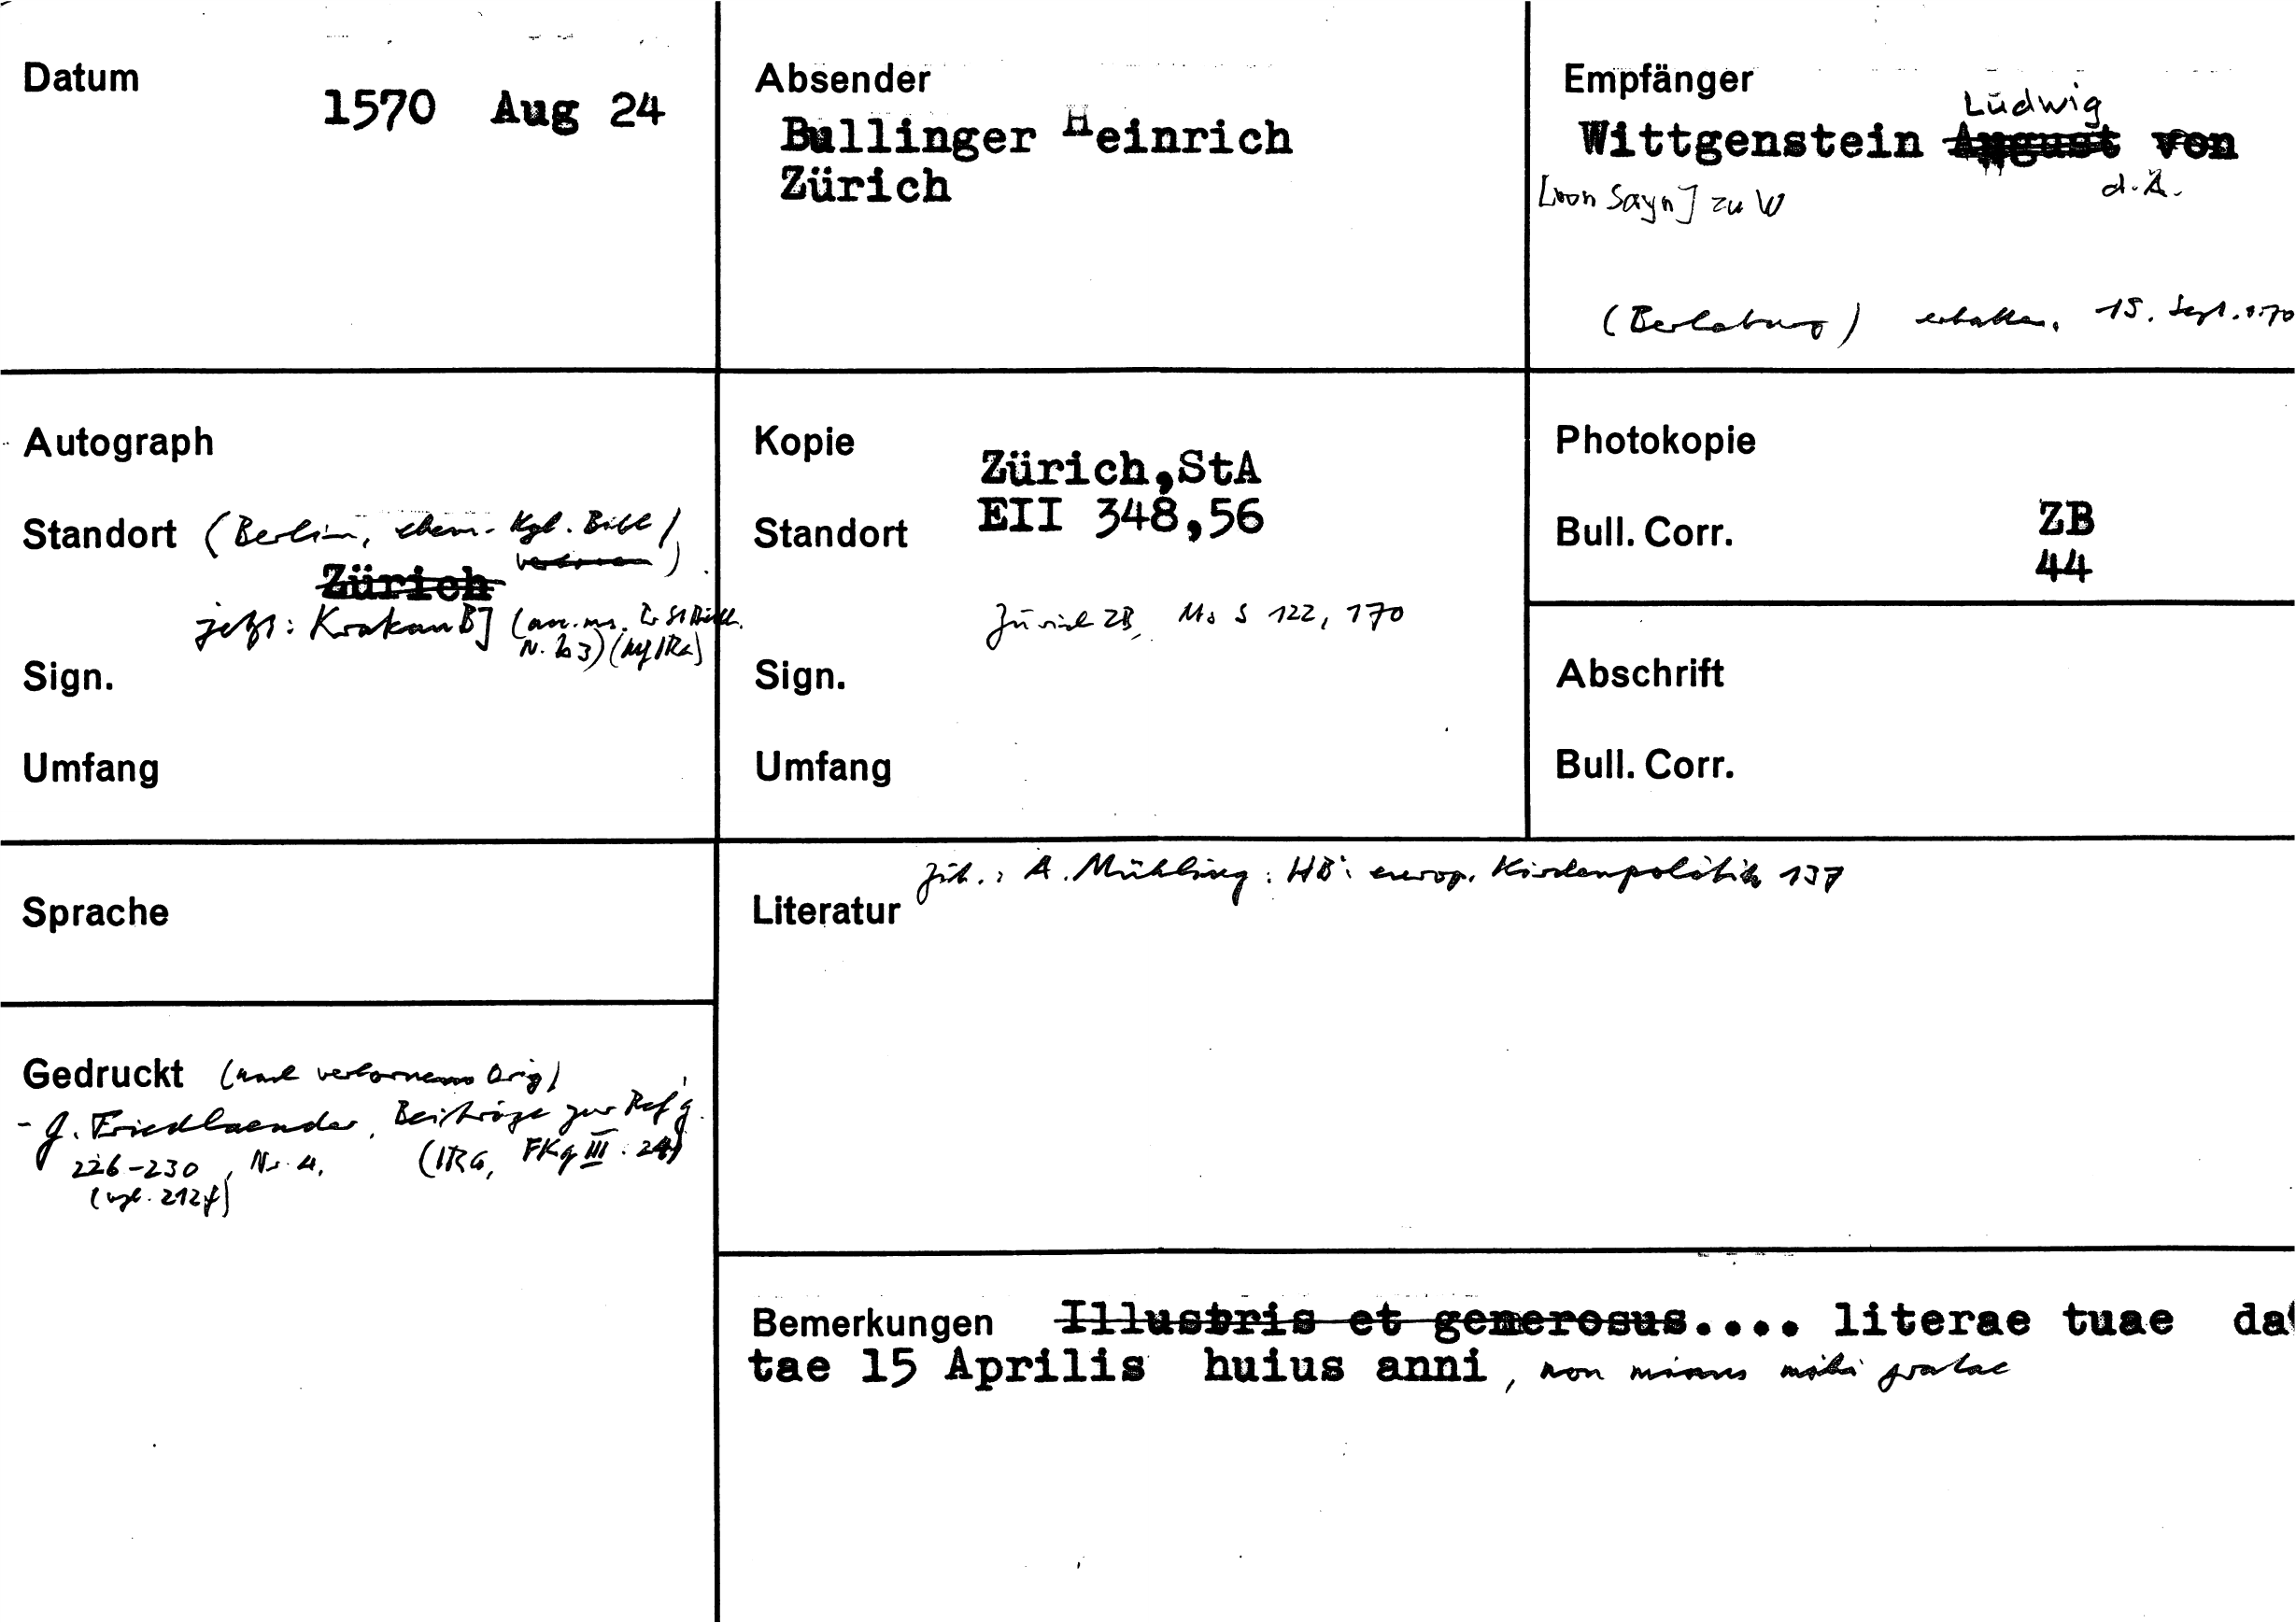 Datum
1570 Aug 24
Absender
Bullinger Heinrich
Zürich
Empfänger
Ludwig
Wittgenstein August von
[von Sayn] zu W d.Ä.
(Berleburg) erhalten. 15. Sept. 1570
Autograph
Standort (Berlin, ehem. Kgl. Bibl
verloren)
Zürich
jetzt: Krakau BJ
Sign.
Umfang
Kopie
Zürich,StA
Standort EII 348,56
Zürich ZB, Ms S 122, 170
Sign.
Umfang
Photokopie
Bull. Corr. ZB
44
Abschrift
Bull. Corr.
Sprache
Literatur zit.: A. Mühling: HB's europ. Kirchenpolitik 137
Gedruckt (nach verlorenem Orig)
- G. Friedlaender, Beiträge zur Refg.
226-230, Nr. 4. (IRG, FKg III : 24)
(vgl. 212f)
Bemerkungen Illustris et generosus.... literae tuae da
tae 15 Aprilis huius anni, non minus mihi gratae